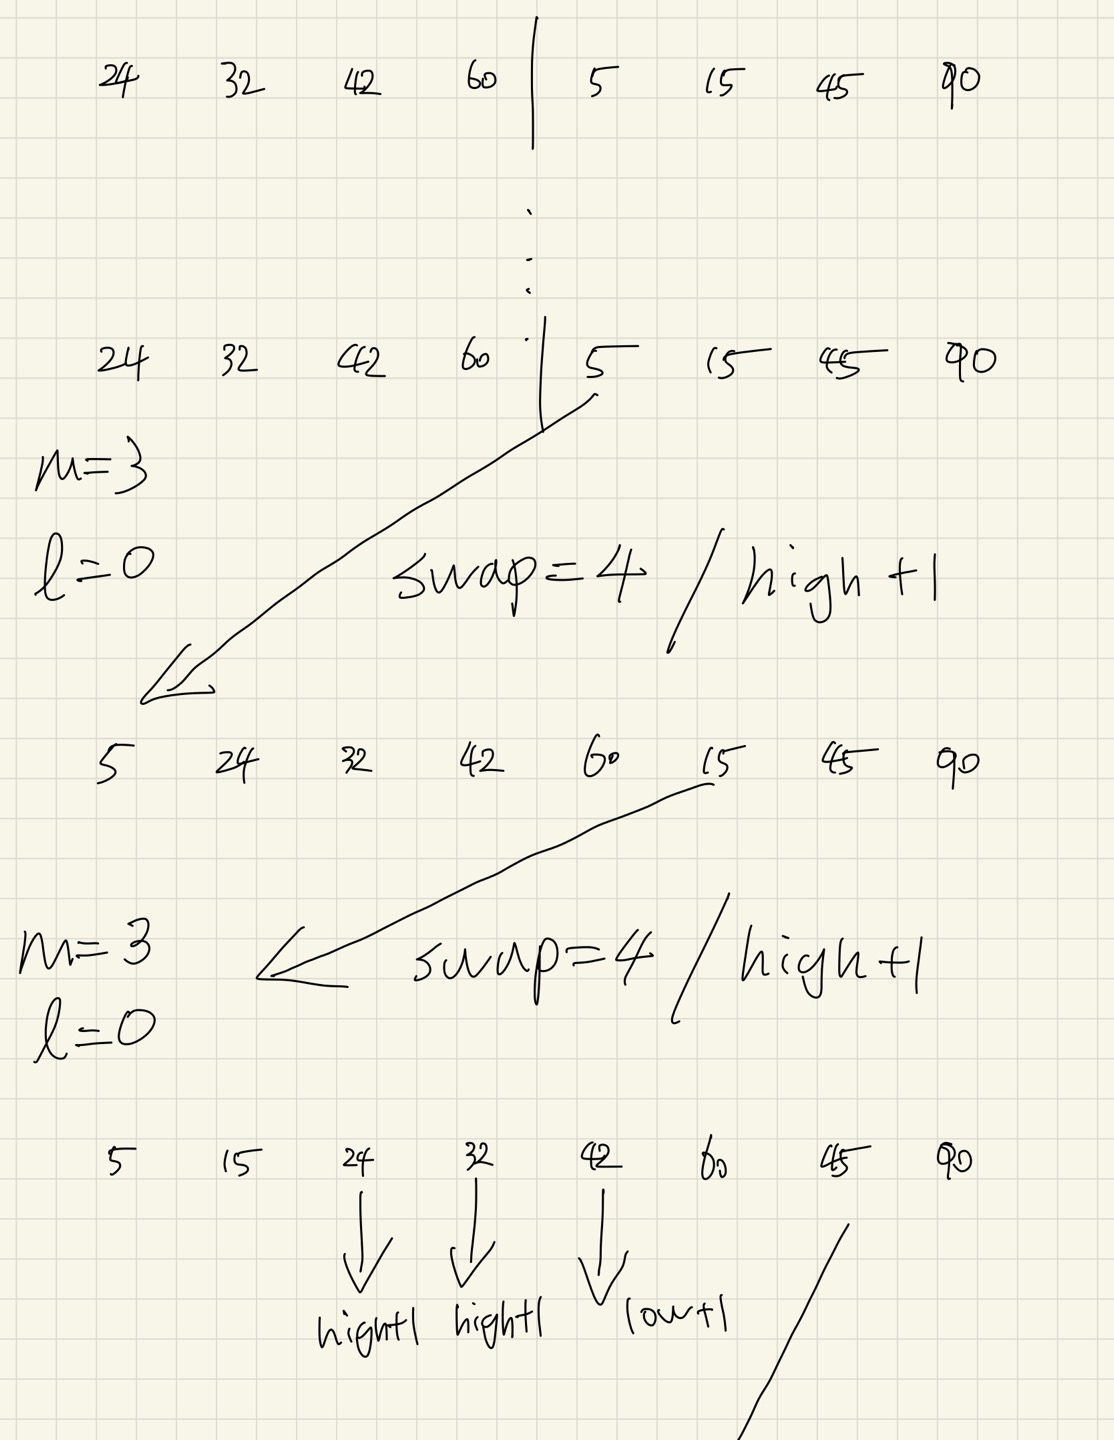 24 32 42 60 5 15 45 90
24 32 42 60 5 15 45 90
m=3
l=0 swap=4 / high+1
5 24 32 42 60 15 45 90
m=3 swap=4 / high+1
l=0
5 15 24 32 42 60 45 90
high+1 high+1 low+1